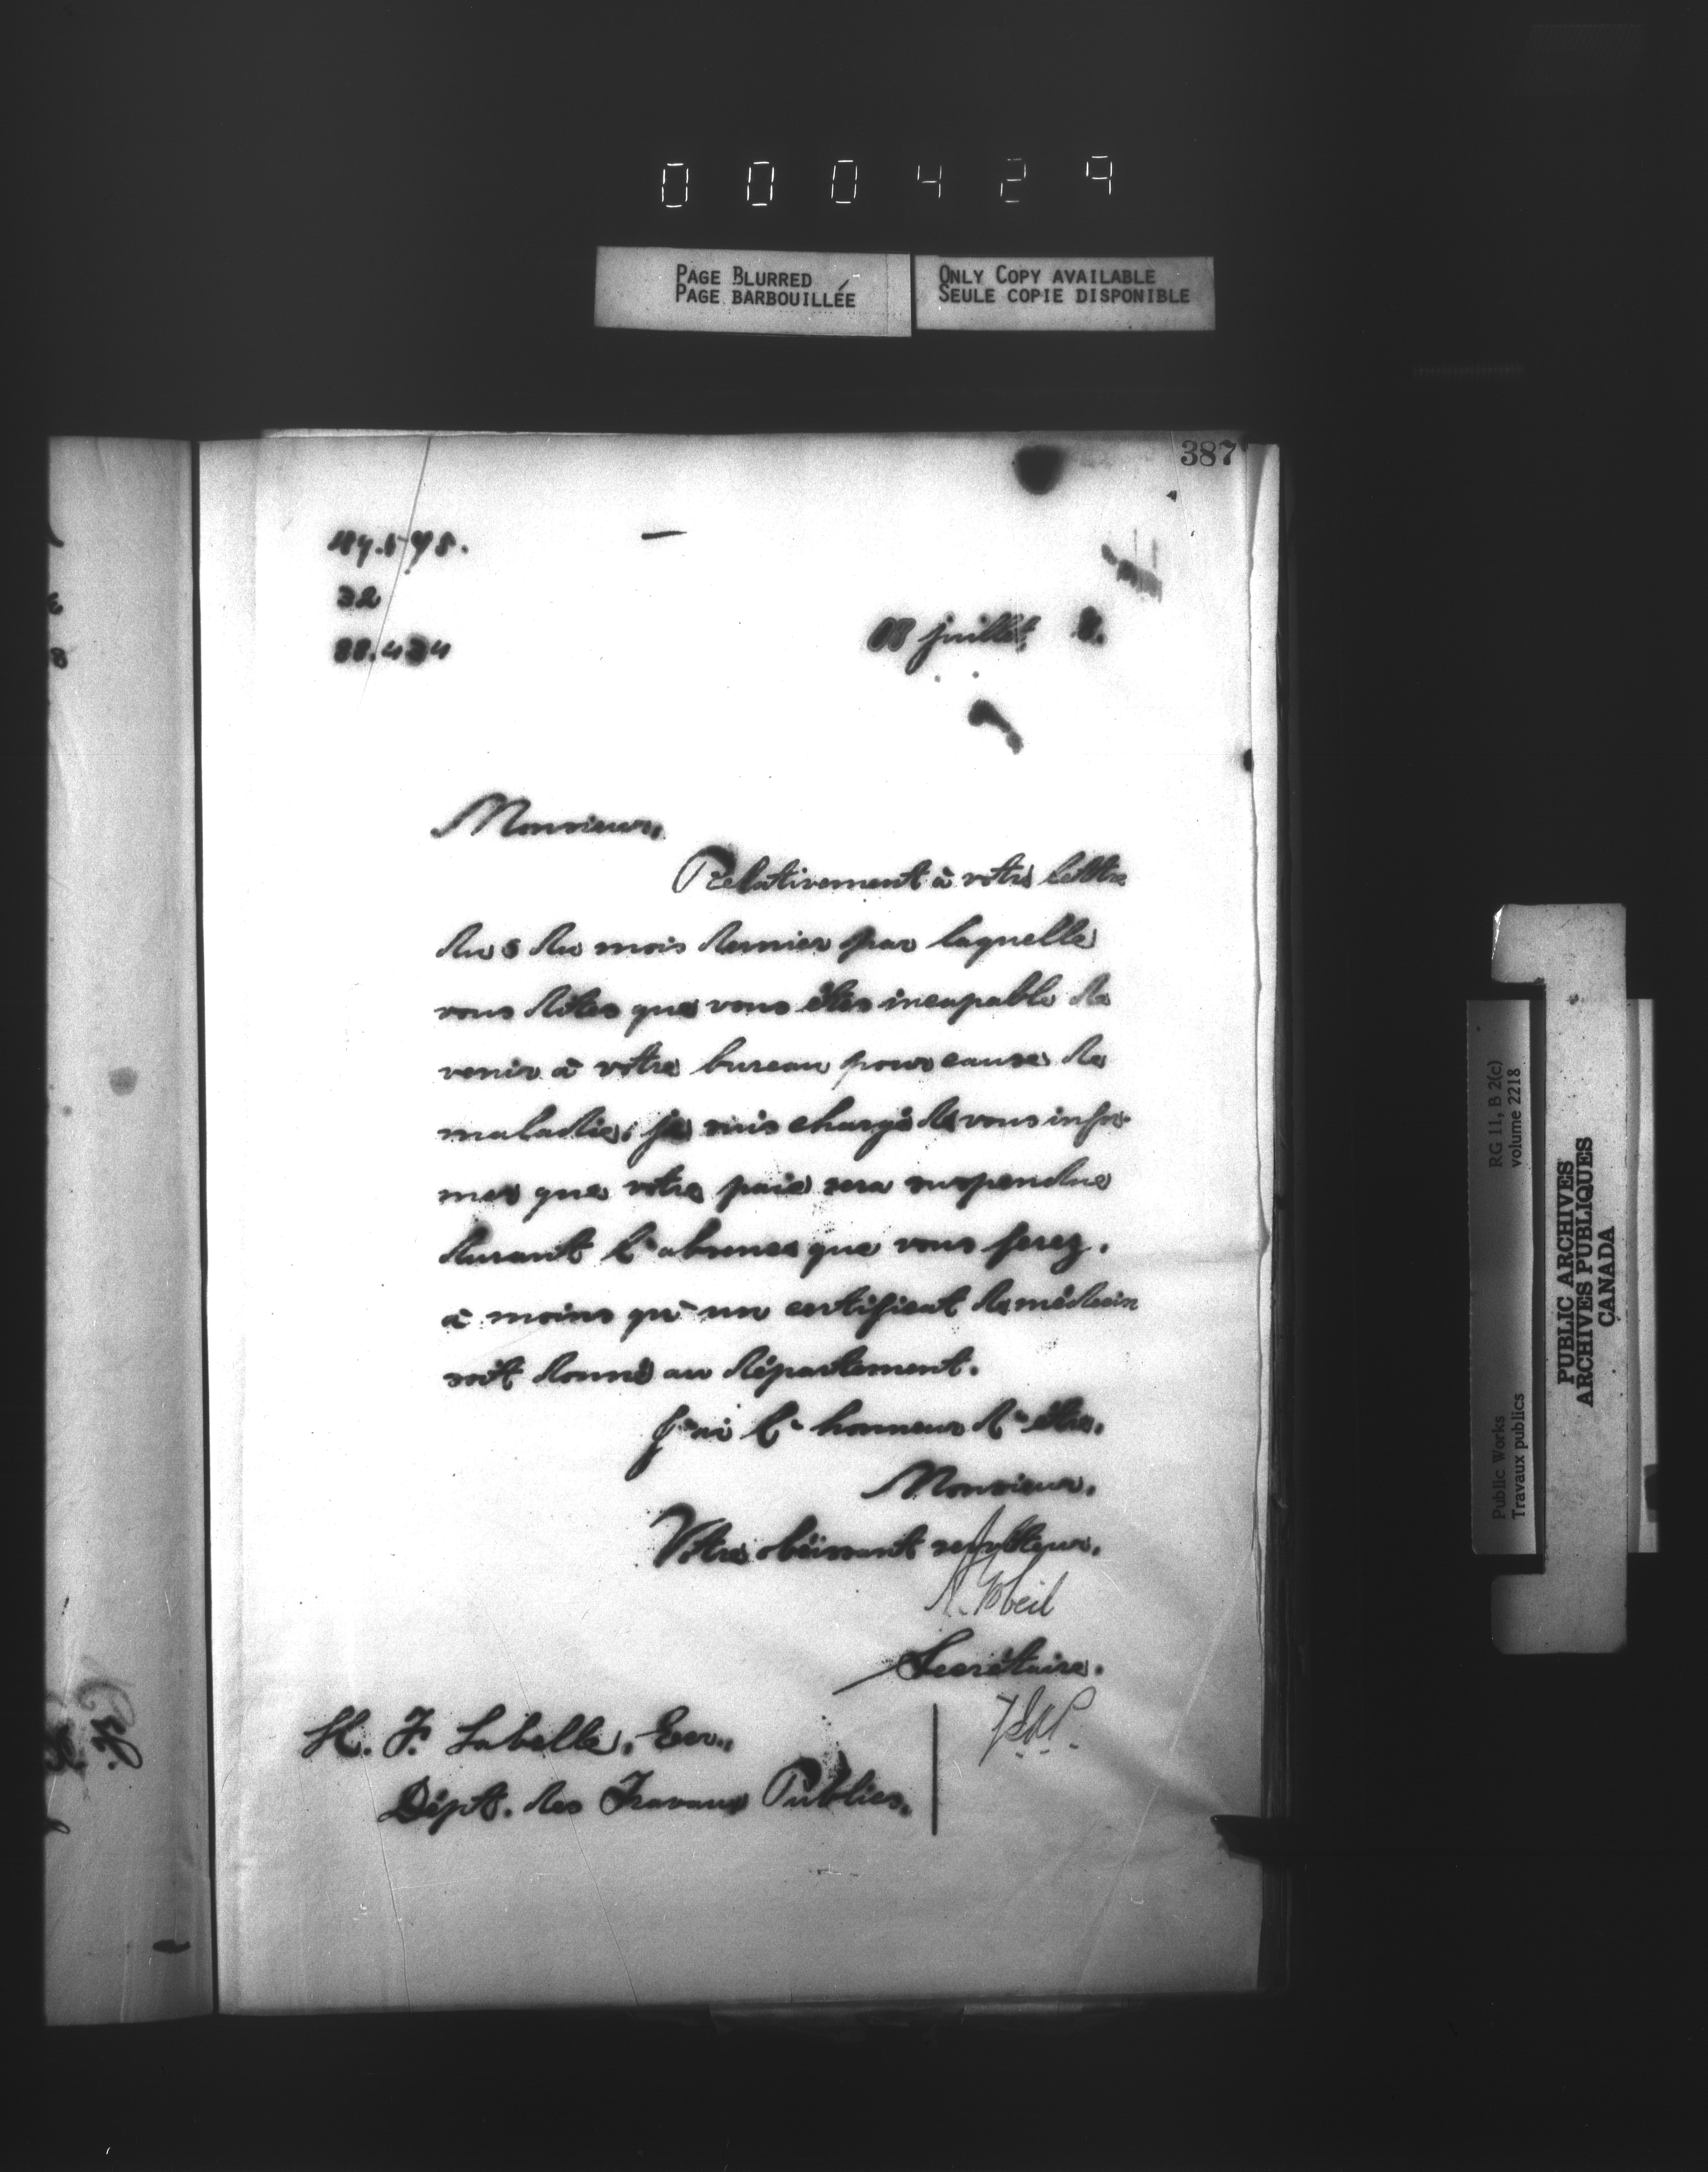 000429
PAGE BLURRED
PAGE BARBOUILLÉE
ONLY COPY AVAILABLE
SEULE COPIE DISPONIBLE
387
32
juillet
Monsieur,
Relativement à votre lettre
du 5 du mois dernier par laquelle
vous dites que vous êtes incapable de
venir à votre bureau pour cause de
maladie, je suis chargé de vous infor-
mer que votre paie sera suspendue
durant l'absence que vous ferez,
à moins qu'un certificat de médecin
soit donné au département.
J'ai l'honneur d'être,
Monsieur,
Votre obéissant serviteur,
A. Gobeil
Secrétaire.
H. F. Labelle, Ecr.,
Dépt. des Travaux Publics.
RG 11, B 2(c)
volume 2218
Public Works
Travaux publics
PUBLIC ARCHIVES
ARCHIVES PUBLIQUES
CANADA